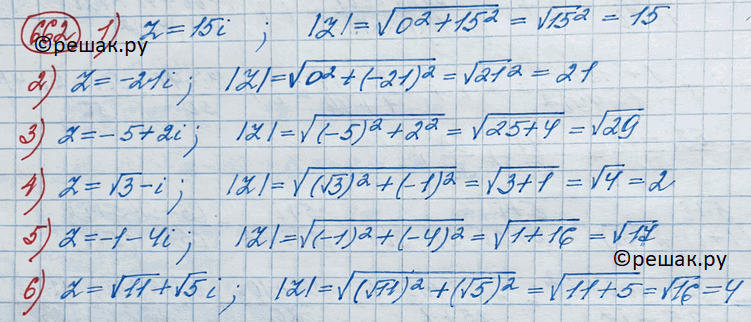 662. 1) Z = 15i ; |Z| = √(0² + 15²) = √15² = 15
©решак.ру
2) Z = -21i ; |Z| = √(0² + (-21)²) = √21² = 21
3) Z = -5 + 2i ; |Z| = √((-5)² + 2²) = √(25 + 4) = √29
4) Z = √3 - i ; |Z| = √((√3)² + (-1)²) = √(3 + 1) = √4 = 2
5) Z = -1 - 4i ; |Z| = √((-1)² + (-4)²) = √(1 + 16) = √17
©решак.ру
6) Z = √11 + √5 i ; |Z| = √((√11)² + (√5)²) = √(11 + 5) = √16 = 4